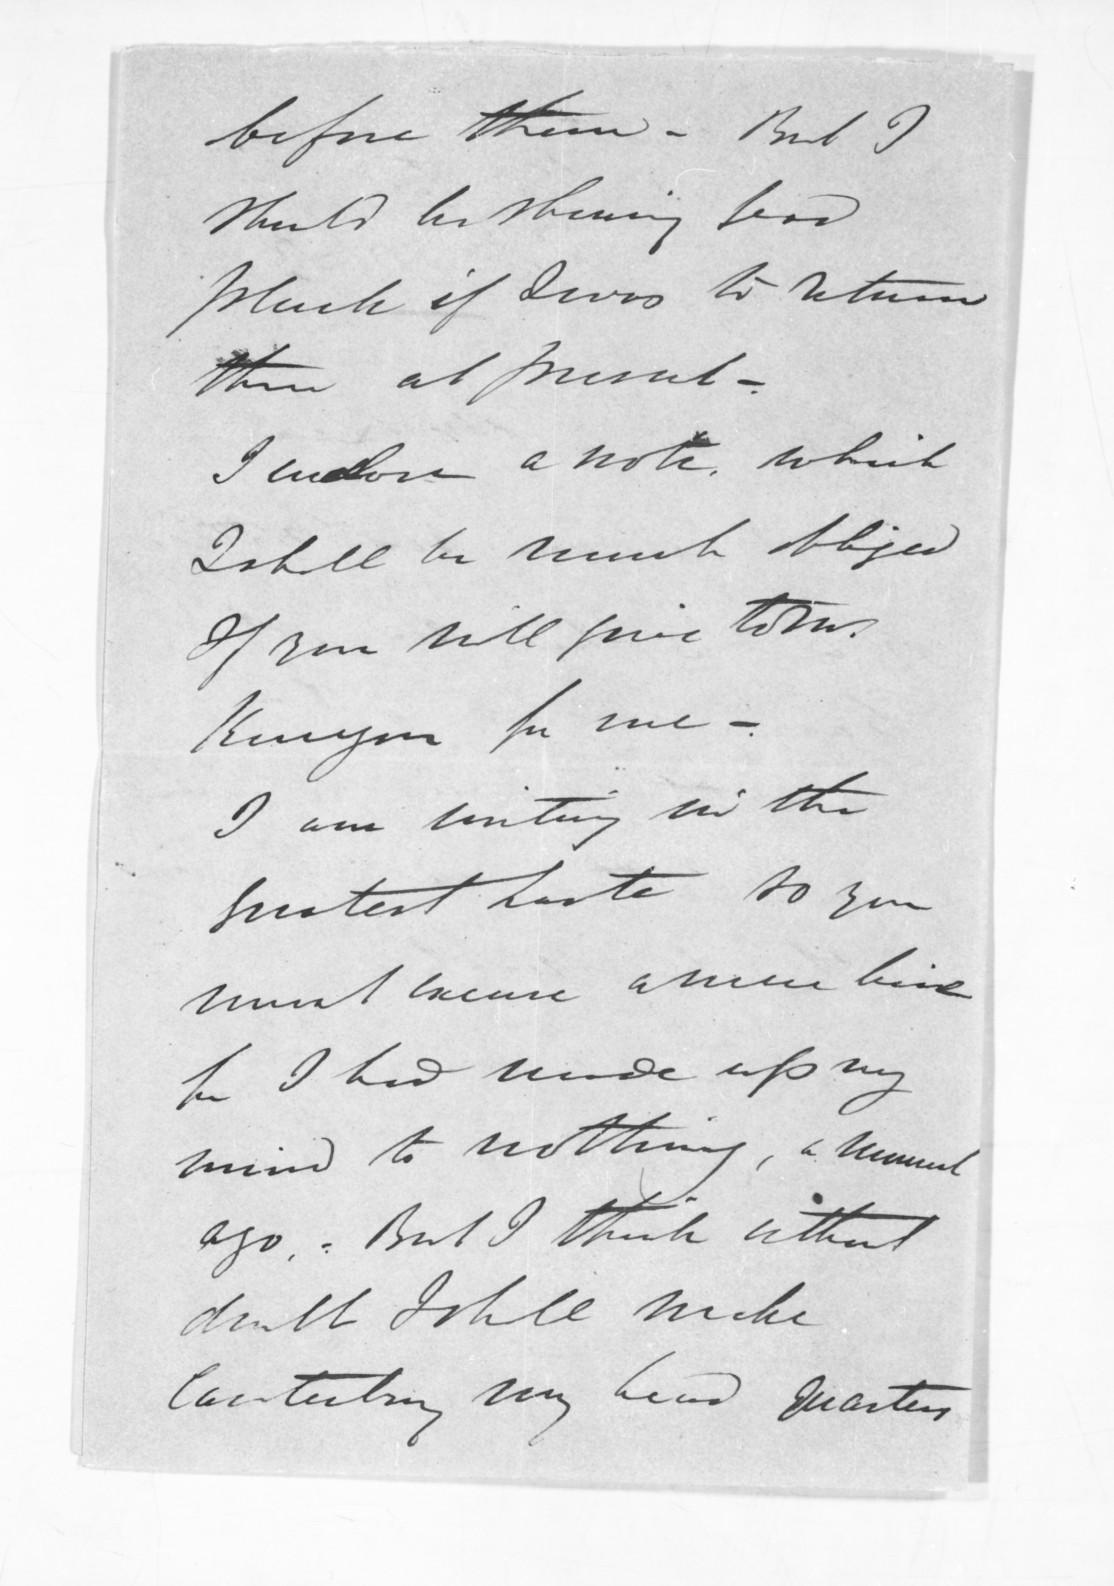 before them - But I
should be shewing bad
pluck if I was to return
there at present -.
I enclose a note. which
I shall be much obliged
If you will give to Mr.
Kenyon for me -.
I am writing in the
greatest haste so you
must excuse a mere line
for I had made up my
mind to nothing, a moment
ago, -. But I think without
doubt I shall make
Canterbury my head quarters